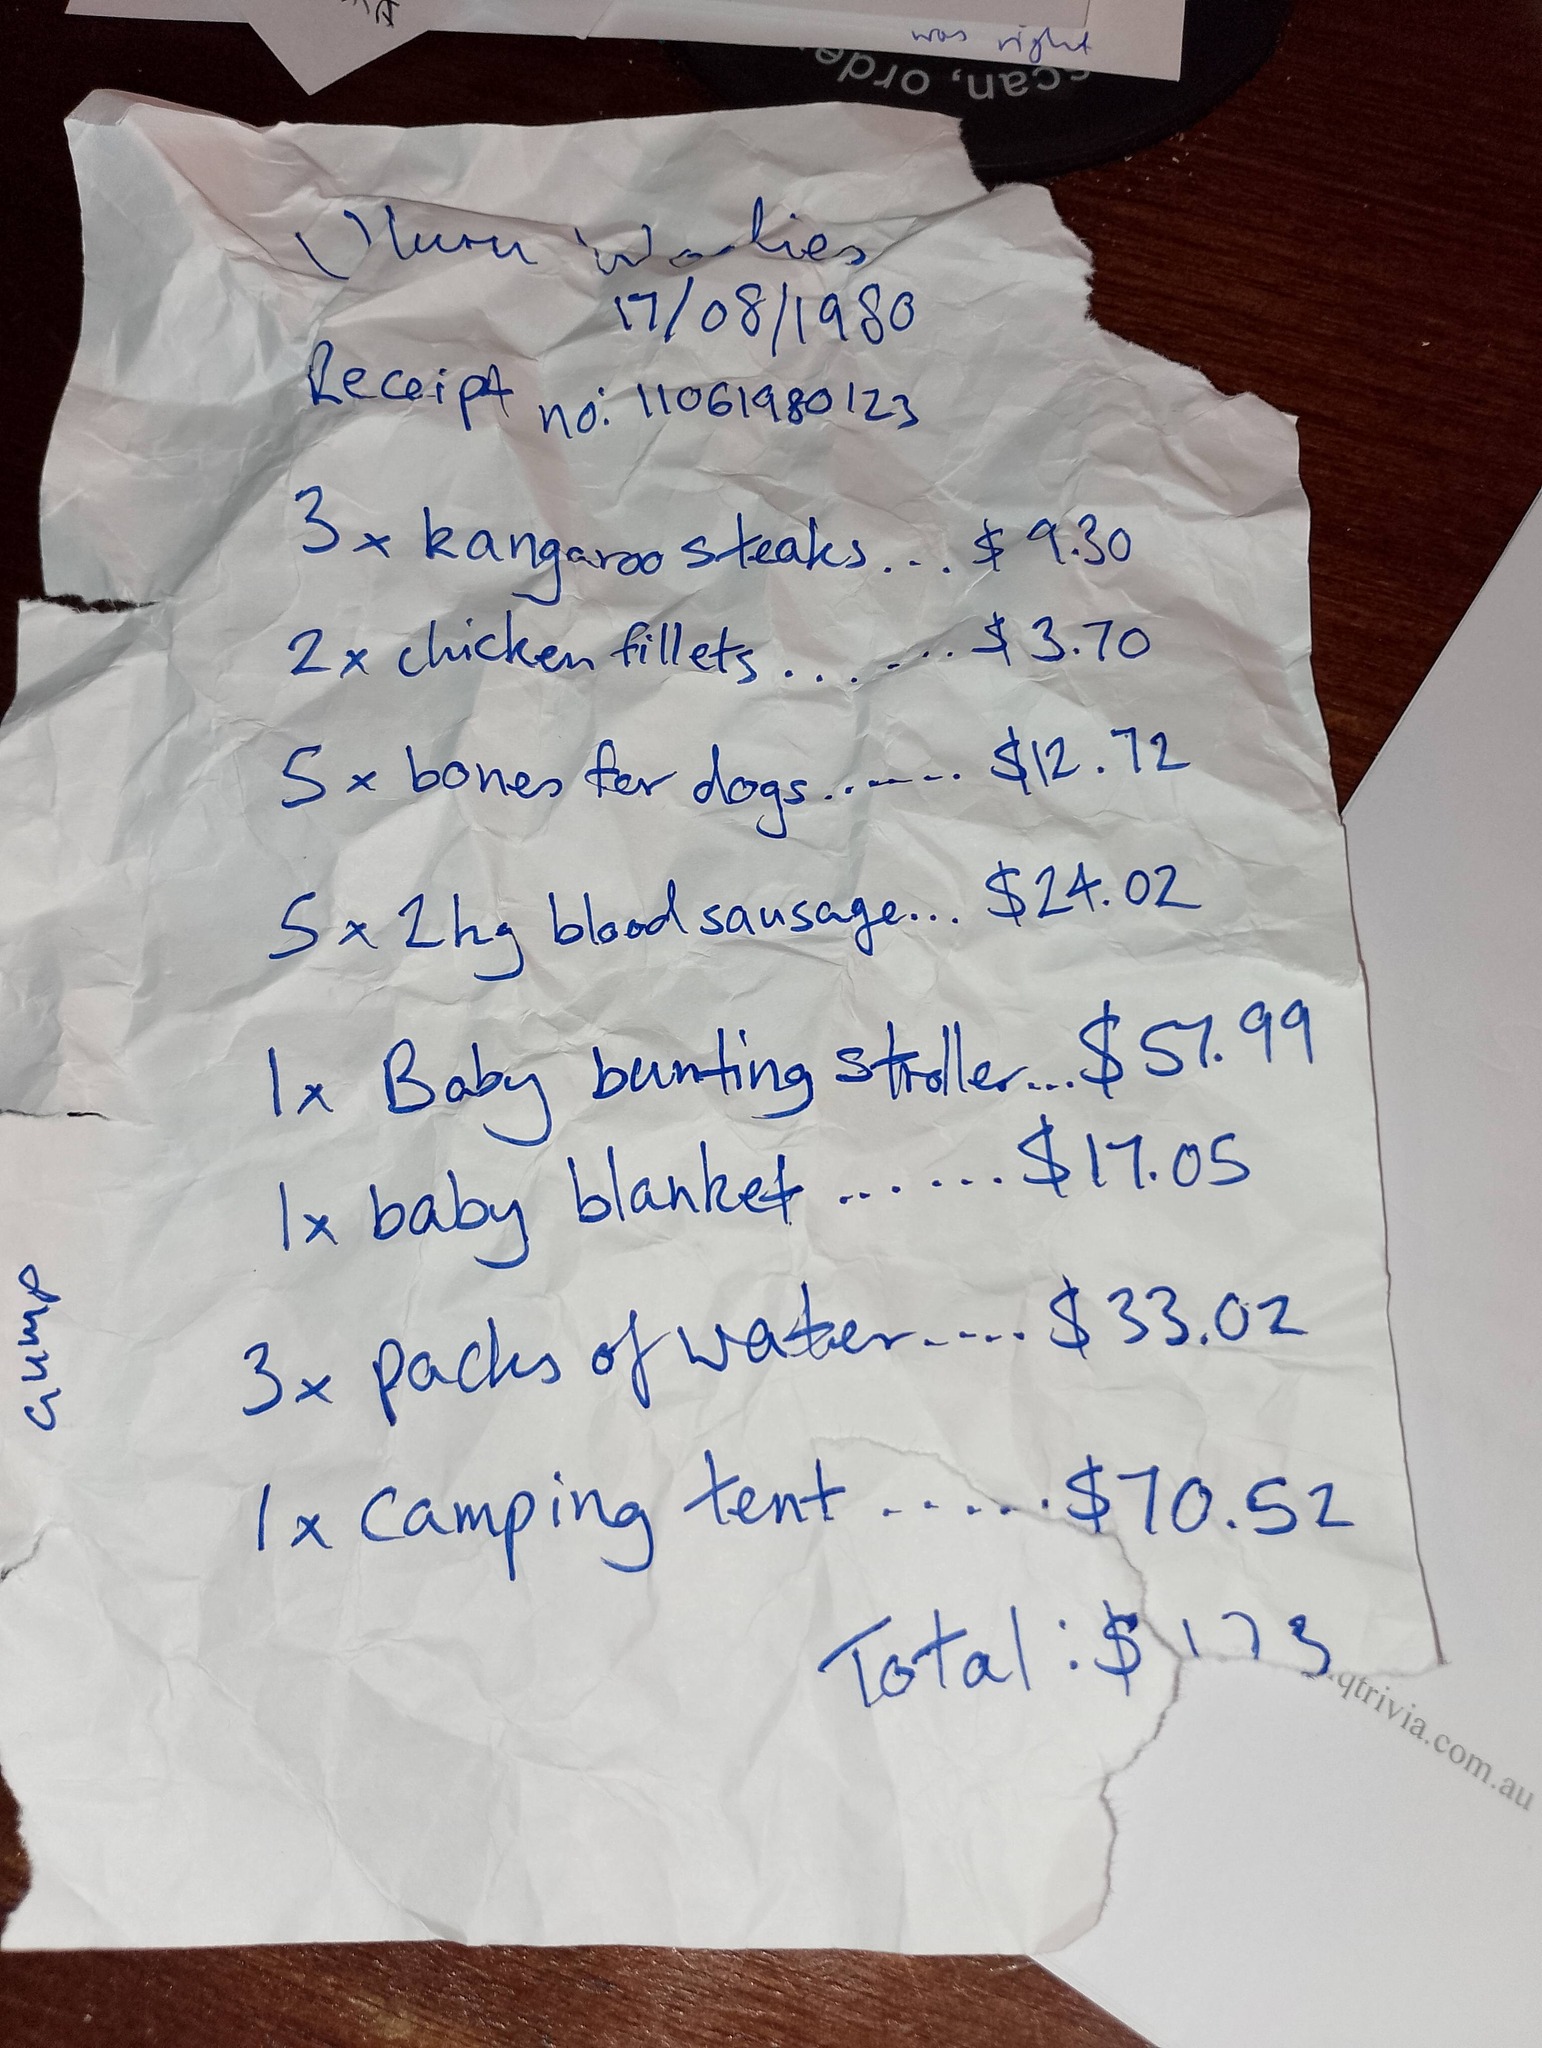 was right
scan, orde
Uluru Woolies
17/08/1980
Receipt no: 11061980123
3x kangaroo steaks... $9.30
2x chicken fillets......... $3.70
5x bones for dogs....... $12.72
5x 2kg blood sausage... $24.02
1x Baby bunting stroller... $57.99
1x baby blanket ....... $17.05
3x packs of water..... $33.02
1x camping tent ...... $70.52
Total: $173
gump
.qtrivia.com.au